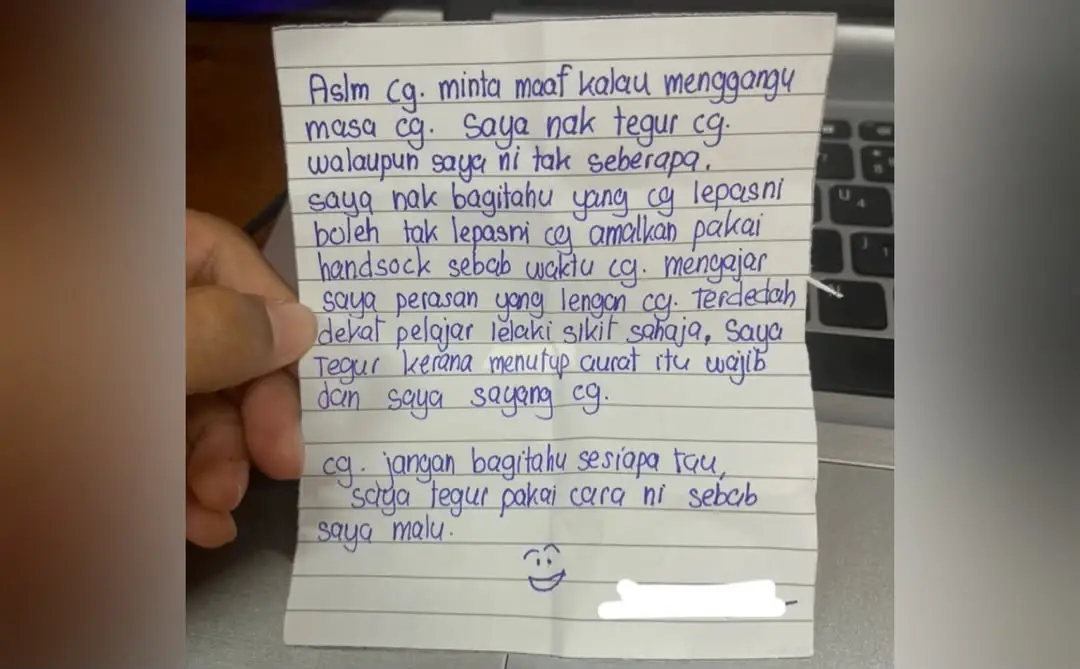 Aslm cg. minta maaf kalau menggangu
masa cg. Saya nak tegur cg.
walaupun saya ni tak seberapa.
saya nak bagitahu yang cg lepasni
boleh tak lepasni cg amalkan pakai
handsock sebab waktu cg. mengajar
saya perasan yang lengan cg. terdedah
dekat pelajar lelaki sikit sahaja, Saya
Tegur kerana menutup aurat itu wajib
dan saya sayang cg.
cg. jangan bagitahu sesiapa tau,
saya tegur pakai cara ni sebab
saya malu.